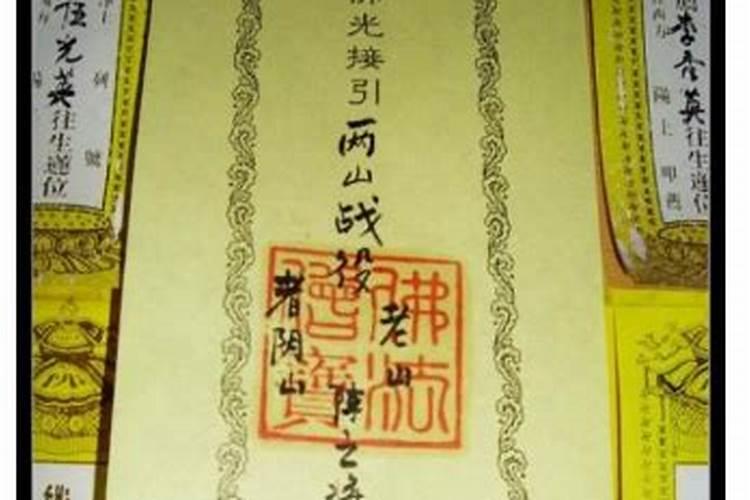 佛光接引两山战役
老山
者阴山
陣亡
佛法僧寶
李金英往生蓮位
陽上
伍光英往生蓮位
號